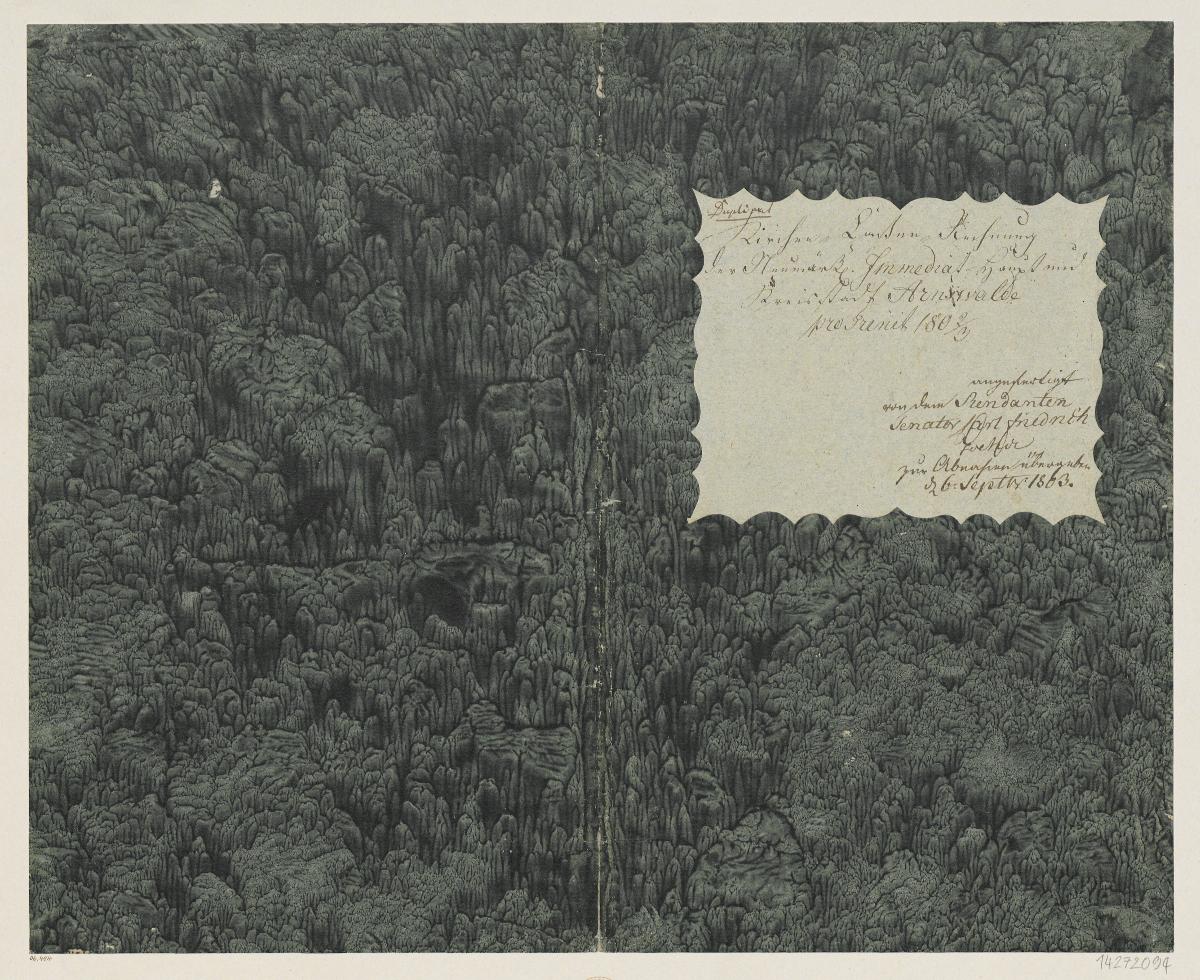 Duplicat
Kirchen-Cassen-Rechnung
der Neumärk. Immediat-Haupt und
Kreisstadt Arnswalde
pro Trinit 180 2/3
angefertigt
von dem Rendanten
Senator Carl Friedrich
zur übergeben
d 6. Septbr 1803.
14272094